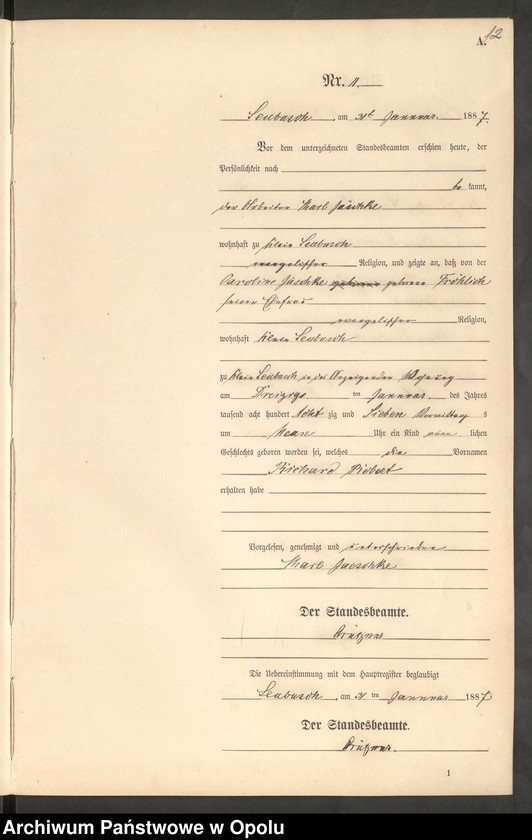 12
A.
Nr. 11.
Leubusch, am 31t Januar 1887.
Vor dem unterzeichneten Standesbeamten erschien heute, der
Persönlichkeit nach
bekannt,
der Arbeiter Karl Jäschke
wohnhaft zu Klein Leubusch
evangelischer Religion, und zeigte an, daß von der
Caroline Jäschke geborene geborene Fröhlich
seiner Ehefrau
evangelischer Religion,
wohnhaft Klein Leubusch
zu Klein Leubusch in des Anzeigenden Wohnung
am Dreizigs ten Januar des Jahres
tausend acht hundert Acht zig und Sieben Vormittag s
um Neun Uhr ein Kind männ lichen
Geschlechts geboren worden sei, welches die Vornamen
Richard Robert
erhalten habe
Vorgelesen, genehmigt und unterschrieben
Karl Jaeschke
Der Standesbeamte.
Die Uebereinstimmung mit dem Hauptregister beglaubigt
Leubusch, am 31 ten Januar 1887
Der Standesbeamte.
1
Archiwum Państwowe w Opolu